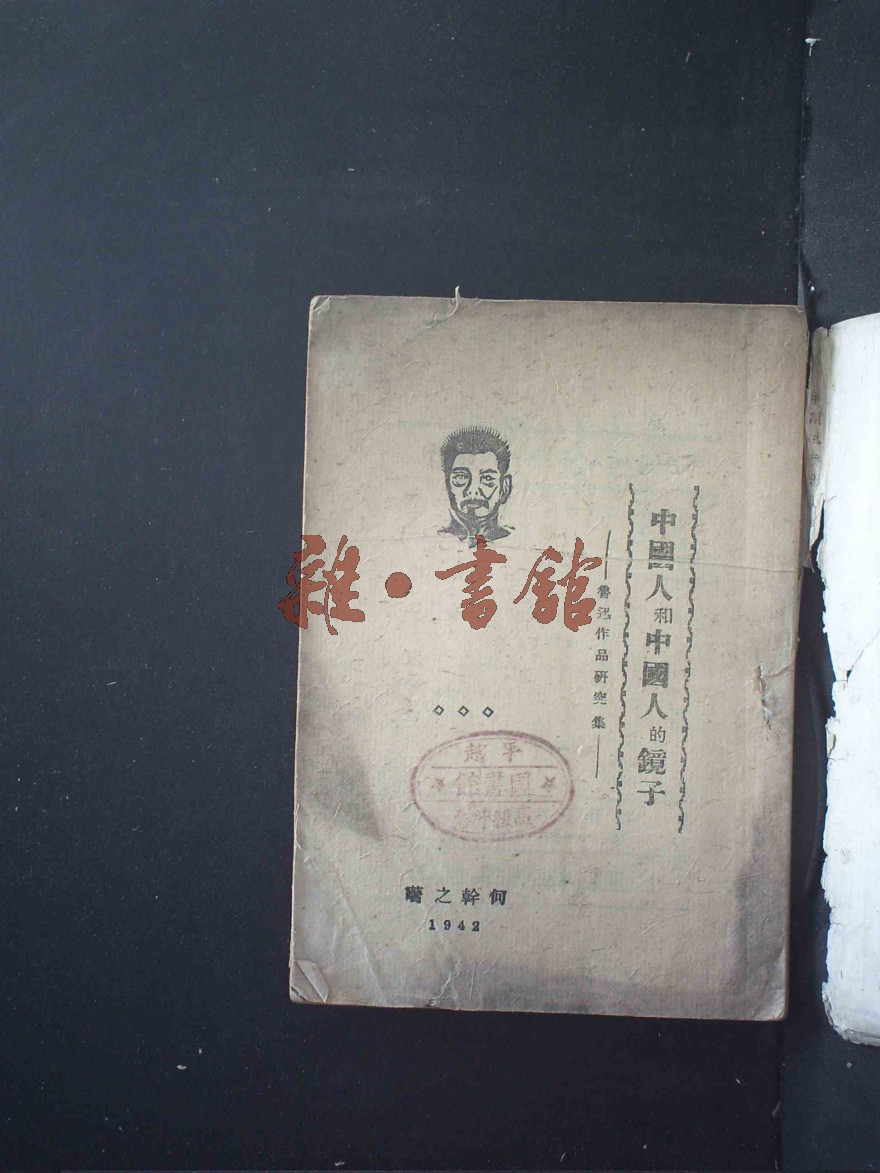 中國人和中國人的鏡子
——魯迅作品研究集——
雜·書館
圖書館
何幹之著
1942